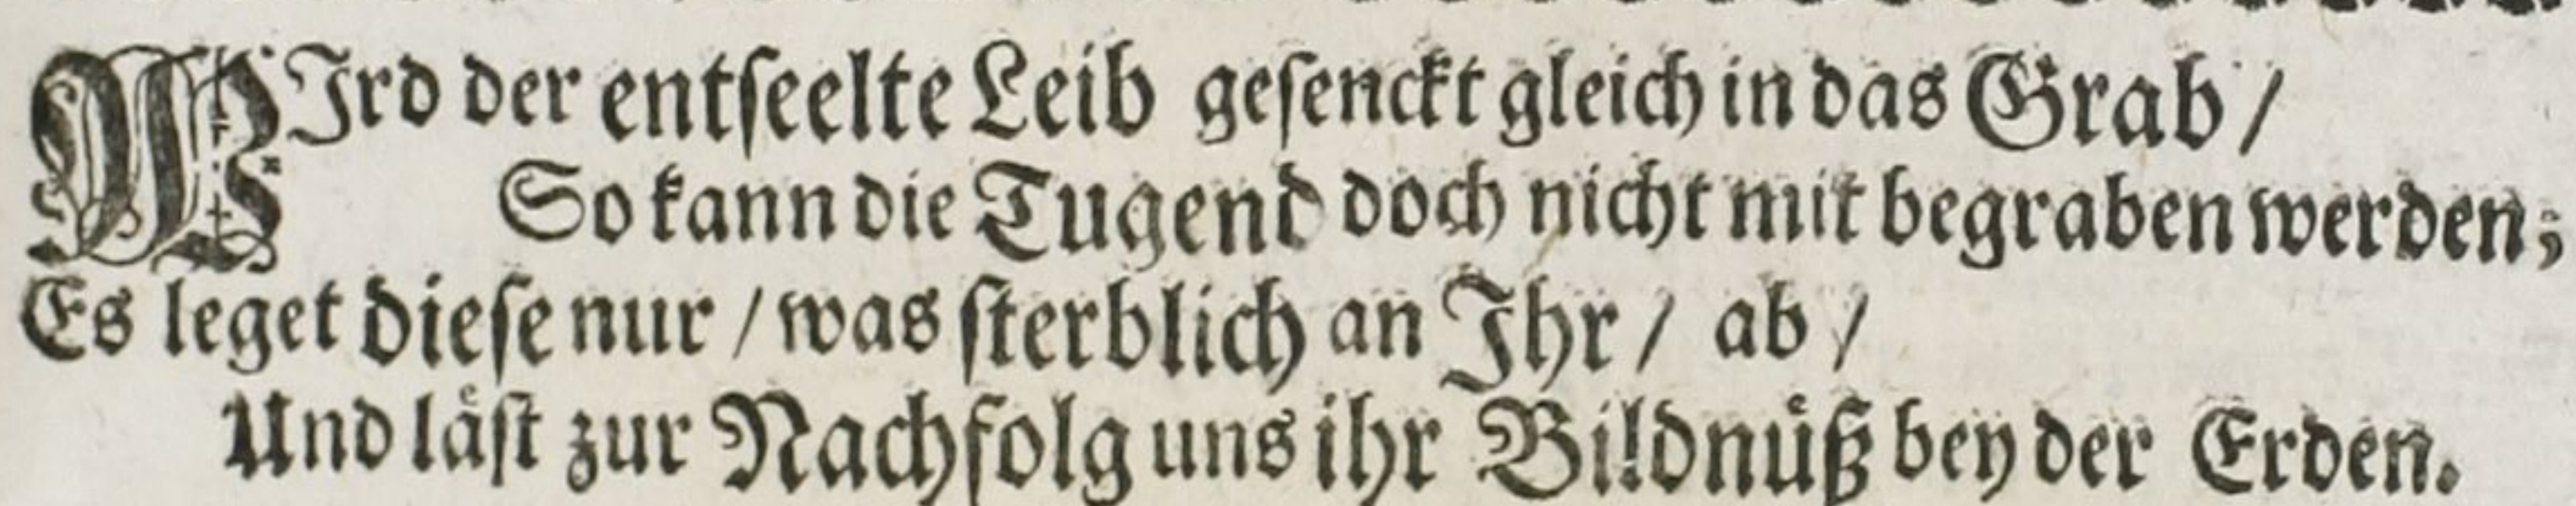 WIrd der entſeelte Leib geſenckt gleich in das Grab /
So kann die Tugend doch nicht mit begraben werden;
Es leget dieſe nur / was ſterblich an Ihr / ab /
Und laͤſt zur Nachfolg uns ihr Bildnuͤß bey der Erden.